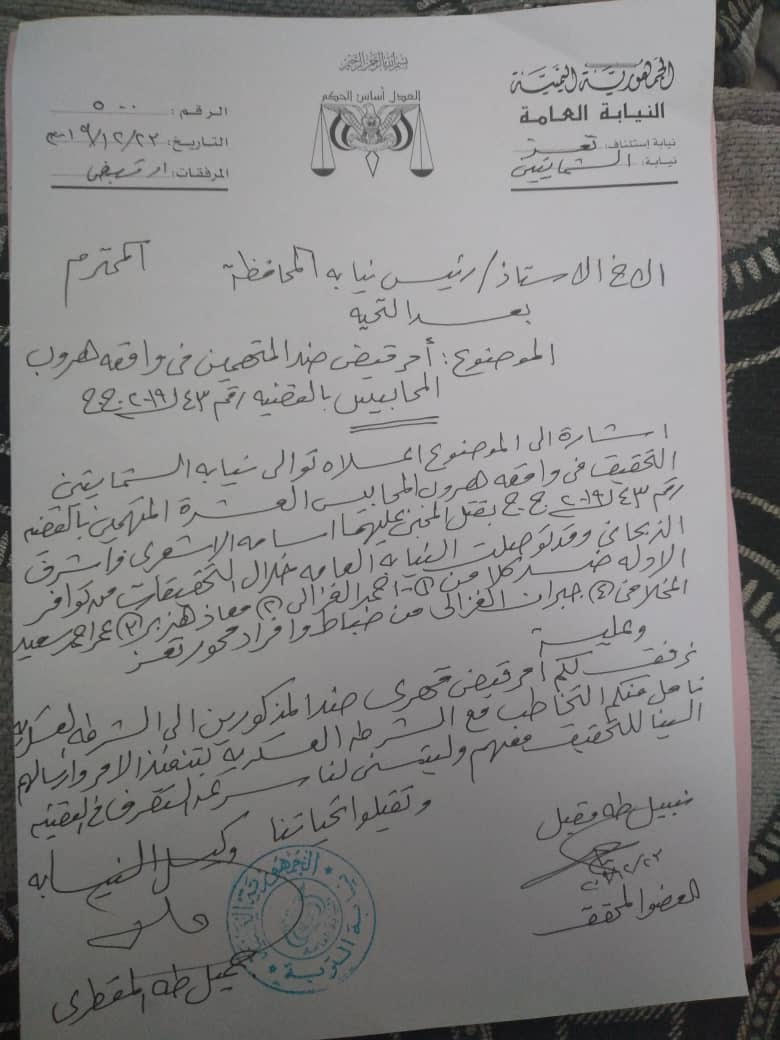 بسم الله الرحمن الرحيم
الجمهورية اليمنية
النيابة العامة
نيابة إستئناف: تعز
نيابة: الشمايتين
العدل أساس الحكم
الرقم: ٥٠٠
التاريخ: ٢٠١٩/١٢/٢٣م
المرفقات:
الاخ الاستاذ/ رئيس نيابه المحافظة المحترم
بعد التحيه
الموضوع: أمر قبض ضد المتهمين في واقعه هروب
المحابيس بالقضيه رقم ٤٣ ل ٢٠١٩ ج.ج
اشارة الى الموضوع اعلاه توالى نيابه الشمايتين
التحقيق في واقعه هروب المحابيس العشرة المتهمين بالقضيه
رقم ٤٣ ل ٢٠١٩ ج ج بقتل المجني عليهما اسامه الاشعري واشرف
الذبحاني وقد توصلت النيابه العامه خلال التحقيقات من توافر
الادله ضد كلا من ١- احمد الغزالي ٢) معاذ هزبر ٣) عمر احمد سعيد
المخلافي ٤) جبران الغزالي من ضباط وافراد محور تعز
وعلية
نرفق لكم أمر قبض قهري ضد المذكورين الى الشرطه العسكريه
نامل منكم التخاطب مع الشرطه العسكرية بتنفيذ الامر وارسالهم
الينا للتحقيق معهم وليتسنى لنا سرعه التصرف في القضيه
وتقبلوا تحياتنا
نبيل طه مقبل
١٢/٢٣
العضو المحقق
وكيل النيابه
جميل طه المقطري
الجمهورية